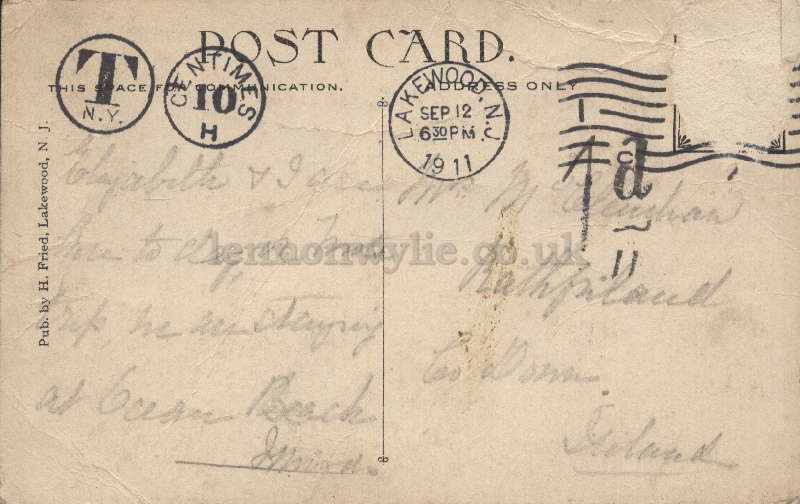 POST CARD.
THIS SPACE FOR COMMUNICATION.
ADDRESS ONLY
T
N.Y.
CENTIMES
10
H
LAKEWOOD, N.J.
SEP 12
6 30 PM.
1911
1 d
Pub. by H. Fried, Lakewood, N. J.
Elizabeth & I are
here to day
trip, we are staying
at Ocean Beach
Mrs
Rathfriland
Co Down
Ireland
lennonwylie.co.uk